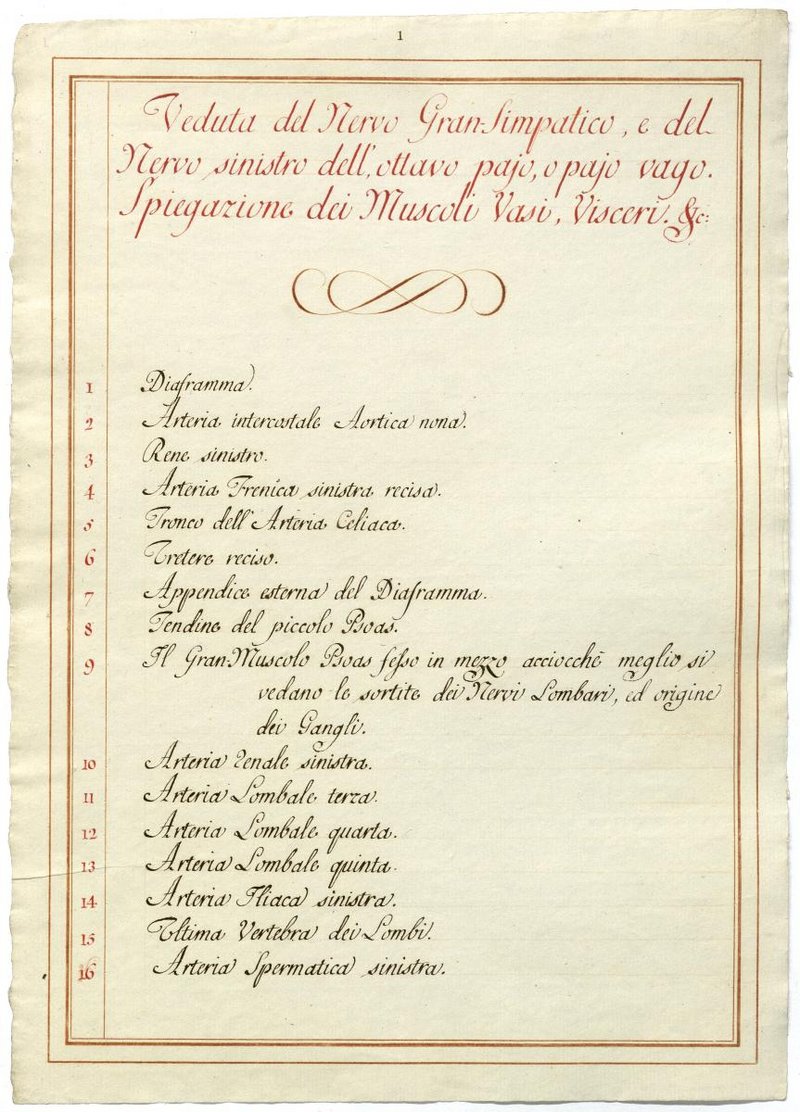 1
Veduta del Nervo Gran-Simpatico, e del
Nervo sinistro dell'ottavo pajo, o pajo vago.
Spiegazione dei Muscoli Vasi, Visceri. &c:
1 Diaframma.
2 Arteria intercostale Aortica nona.
3 Rene sinistro.
4 Arteria Frenica sinistra recisa.
5 Tronco dell'Arteria Celiaca.
6 Uretere reciso.
7 Appendice esterna del Diaframma.
8 Tendine del piccolo Psoas.
9 Il Gran-Muscolo Psoas fesso in mezzo acciocchè meglio si
vedano le sortite dei Nervi Lombari, ed origine
dei Gangli.
10 Arteria Renale sinistra.
11 Arteria Lombale terza.
12 Arteria Lombale quarta.
13 Arteria Lombale quinta.
14 Arteria Iliaca sinistra.
15 Ultima Vertebra dei Lombi.
16 Arteria Spermatica sinistra.